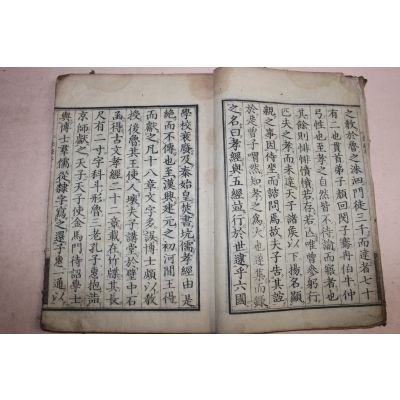 之教於魯之洙泗門徒三千而達者七十
有二也貫首弟子顏回閔子騫冉伯牛仲
弓性也至孝之自然皆不待諭而寤者也
其餘則悱悱憤憤若存若亡唯曾參躬行
匹夫之孝而未達天子諸矦以下揚名顯
親之事因侍坐而諮問焉故夫子告其誼
於是曾子喟然知孝之為大也遂集而錄
之名曰孝經與五經並行於世逮乎六國
學校衰廢及秦始皇焚書坑儒孝經由是
絕而不傳也至漢興建元之初河間王得
而獻之凡十八章文字多誤博士頗以教
授後魯共王使人壞夫子講堂於壁中石
函得古文孝經二十二章載在竹牒其長
尺有二寸字科斗形魯三老孔子惠抱詣
京師獻之天子天子使金馬門待詔學士
與博士羣儒從隸字寫之還子惠一通以